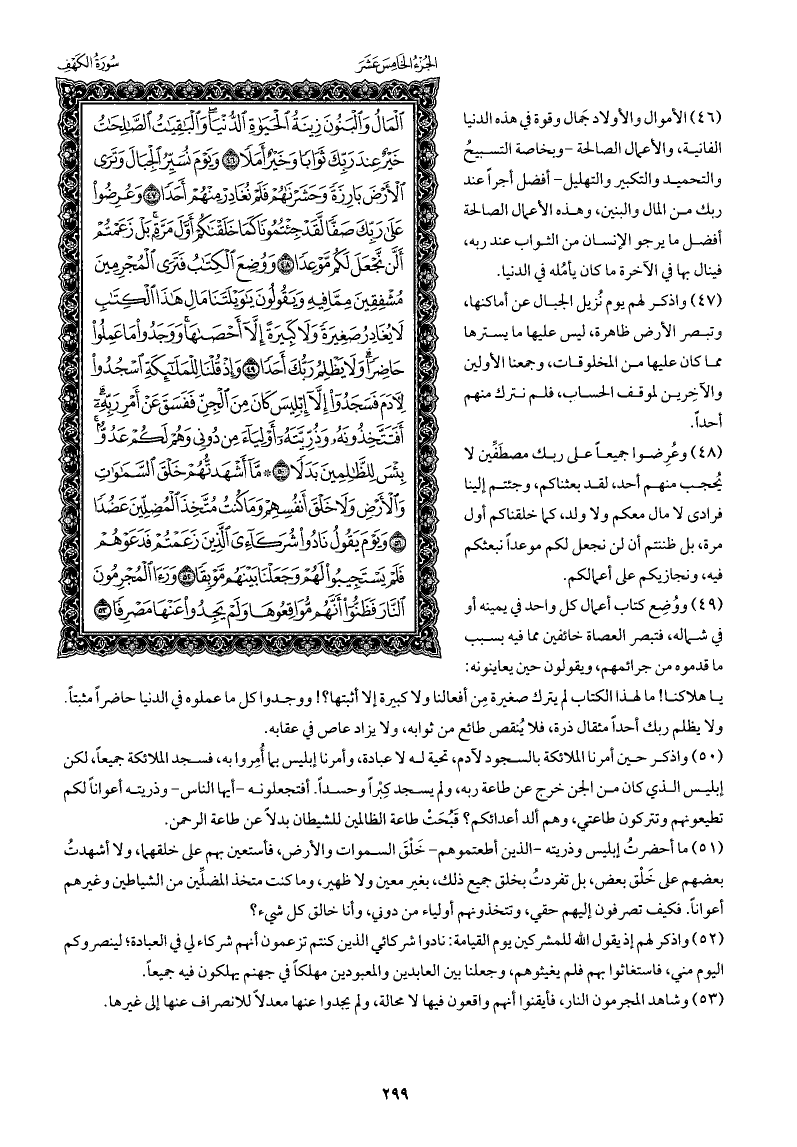 الجزء الخامس عشر
سورة الكهف
ٱلْمَالُ وَٱلْبَنُونَ زِينَةُ ٱلْحَيَوٰةِ ٱلدُّنْيَا ۖ وَٱلْبَٰقِيَٰتُ ٱلصَّٰلِحَٰتُ
خَيْرٌ عِندَ رَبِّكَ ثَوَابًا وَخَيْرٌ أَمَلًا ٤٦ وَيَوْمَ نُسَيِّرُ ٱلْجِبَالَ وَتَرَى
ٱلْأَرْضَ بَارِزَةً وَحَشَرْنَٰهُمْ فَلَمْ نُغَادِرْ مِنْهُمْ أَحَدًا ٤٧ وَعُرِضُوا۟
عَلَىٰ رَبِّكَ صَفًّا لَّقَدْ جِئْتُمُونَا كَمَا خَلَقْنَٰكُمْ أَوَّلَ مَرَّةٍۭ ۚ بَلْ زَعَمْتُمْ
أَلَّن نَّجْعَلَ لَكُم مَّوْعِدًا ٤٨ وَوُضِعَ ٱلْكِتَٰبُ فَتَرَى ٱلْمُجْرِمِينَ
مُشْفِقِينَ مِمَّا فِيهِ وَيَقُولُونَ يَٰوَيْلَتَنَا مَالِ هَٰذَا ٱلْكِتَٰبِ
لَا يُغَادِرُ صَغِيرَةً وَلَا كَبِيرَةً إِلَّآ أَحْصَىٰهَا ۚ وَوَجَدُوا۟ مَا عَمِلُوا۟
حَاضِرًا ۗ وَلَا يَظْلِمُ رَبُّكَ أَحَدًا ٤٩ وَإِذْ قُلْنَا لِلْمَلَٰٓئِكَةِ ٱسْجُدُوا۟
لِءَادَمَ فَسَجَدُوٓا۟ إِلَّآ إِبْلِيسَ كَانَ مِنَ ٱلْجِنِّ فَفَسَقَ عَنْ أَمْرِ رَبِّهِۦٓ ۗ
أَفَتَتَّخِذُونَهُۥ وَذُرِّيَّتَهُۥٓ أَوْلِيَآءَ مِن دُونِى وَهُمْ لَكُمْ عَدُوٌّۢ ۚ
بِئْسَ لِلظَّٰلِمِينَ بَدَلًا ٥٠ ۞ مَّآ أَشْهَدتُّهُمْ خَلْقَ ٱلسَّمَٰوَٰتِ
وَٱلْأَرْضِ وَلَا خَلْقَ أَنفُسِهِمْ وَمَا كُنتُ مُتَّخِذَ ٱلْمُضِلِّينَ عَضُدًا
٥١ وَيَوْمَ يَقُولُ نَادُوا۟ شُرَكَآءِىَ ٱلَّذِينَ زَعَمْتُمْ فَدَعَوْهُمْ
فَلَمْ يَسْتَجِيبُوا۟ لَهُمْ وَجَعَلْنَا بَيْنَهُم مَّوْبِقًا ٥٢ وَرَءَا ٱلْمُجْرِمُونَ
ٱلنَّارَ فَظَنُّوٓا۟ أَنَّهُم مُّوَاقِعُوهَا وَلَمْ يَجِدُوا۟ عَنْهَا مَصْرِفًا ٥٣
(٤٦) الأموال والأولاد جَمال وقوة في هذه الدنيا
الفانية، والأعمال الصالحة -وبخاصة التسبيحُ
والتحميد والتكبير والتهليل- أفضل أجراً عند
ربك مـن المال والبنين، وهـذه الأعمال الصالحة
أفضـل ما يرجو الإنسـان من الثـواب عند ربه،
فينال بها في الآخرة ما كان يأمُله في الدنيا.
(٤٧) واذكـر لهم يوم نُزيل الجبـال عن أماكنها،
وتبـصر الأرض ظاهرة، ليس عليها ما يسـترها
ممـا كان عليها مـن المخلوقـات، وجمعنا الأولين
والآخِريـن لموقـف الحسـاب، فلـم نـترك منهم
أحداً.
(٤٨) وعُرِضـوا جميعـاً عـلى ربـك مصطَفِّين لا
يُحجـب منهـم أحد، لقـد بعثناكم، وجئتـم إلينا
فرادى لا مال معكم ولا ولد، كما خلقناكم أول
مرة، بل ظننتم أن لن نجعل لكم موعداً نبعثكم
فيه، ونجازيكم على أعمالكم.
(٤٩) ووُضِع كتاب أعمال كل واحد في يمينه أو
في شـماله، فتبصر العصاة خائفين مما فيه بسـبب
ما قدموه من جرائمهم، ويقولون حين يعاينونه:
يـا هلاكنـا! ما لهـذا الكتاب لم يترك صغيرة مِن أفعالنا ولا كبيرة إلا أثبتها؟! ووجـدوا كل ما عملوه في الدنيا حاضراً مثبتاً.
ولا يظلم ربك أحداً مثقال ذرة، فلا يُنقص طائع من ثوابه، ولا يزاد عاص في عقابه.
(٥٠) واذكـر حـين أمرنا الملائكة بالسـجود لآدم، تحية لـه لا عبادة، وأمرنا إبليس بما أُمِروا به، فسـجد الملائكة جميعـاً، لكن
إبليـس الـذي كان مـن الجن خرج عن طاعة ربه، ولم يسـجد كِبْراً وحسـداً. أفتجعلونـه -أيها الناس- وذريتـه أعواناً لكم
تطيعونهم وتتركون طاعتي، وهم ألد أعدائكم؟ قَبُحَتْ طاعة الظالمين للشيطان بدلاً عن طاعة الرحمن.
(٥١) ما أحضرتُ إبليس وذريته -الذين أطعتموهم- خَلْقَ السـموات والأرض، فأستعين بهم على خلقهما، ولا أشهدتُ
بعضهم على خَلْق بعض، بل تفردتُ بخلق جميع ذلك، بغير معين ولا ظهير، وما كنت متخذ المضلِّين من الشياطين وغيرهم
أعواناً. فكيف تصرفون إليهم حقي، وتتخذونهم أولياء من دوني، وأنا خالق كل شيء؟
(٥٢) واذكر لهم إذ يقول الله للمشركين يوم القيامة: نادوا شركائي الذين كنتم تزعمون أنهم شركاء لي في العبادة؛ لينصروكم
اليوم مني، فاستغاثوا بهم فلم يغيثوهم، وجعلنا بين العابدين والمعبودين مهلكاً في جهنم يهلكون فيه جميعاً.
(٥٣) وشاهد المجرمون النار، فأيقنوا أنهم واقعون فيها لا محالة، ولم يجدوا عنها معدلاً للانصراف عنها إلى غيرها.
٢٩٩